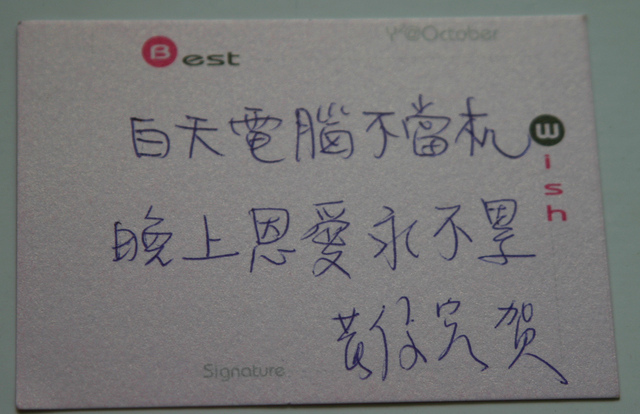 Best
Wish
@October
白天電腦不當机
晚上恩愛永不累
賀
Signature